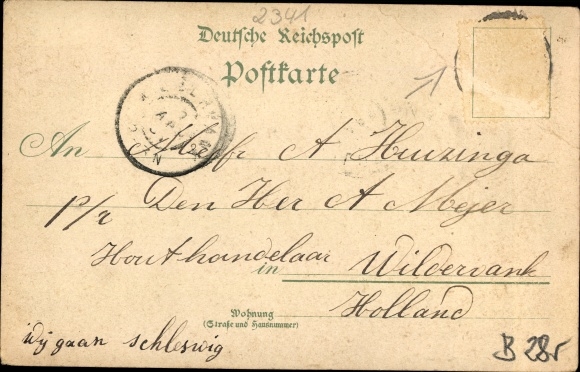 2341
Deutsche Reichspost
Postkarte
An Mejfr A Huizinga
p/a Den Her A Meijer
Houthandelaar
in Wildervank
Holland
Wohnung
(Straße und Hausnummer)
wij gaan schleswig
B 28r